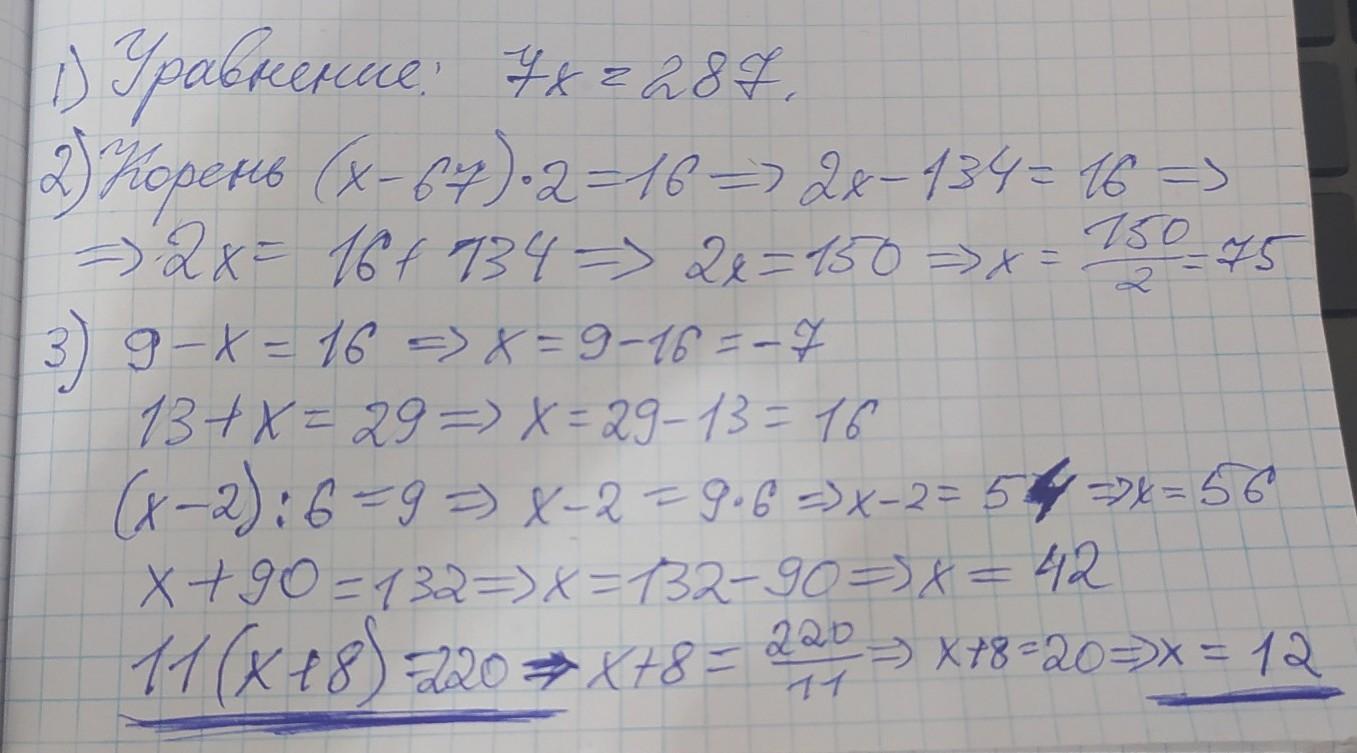 1) Уравнение: 7x = 287.
2) Корень (x-67)·2 = 16 => 2x-134 = 16 =>
=> 2x = 16+134 => 2x = 150 => x = 150/2 = 75
3) 9-x = 16 => x = 9-16 = -7
13+x = 29 => x = 29-13 = 16
(x-2):6 = 9 => x-2 = 9·6 => x-2 = 54 => x = 56
x+90 = 132 => x = 132-90 => x = 42
11(x+8) = 220 => x+8 = 220/11 => x+8 = 20 => x = 12